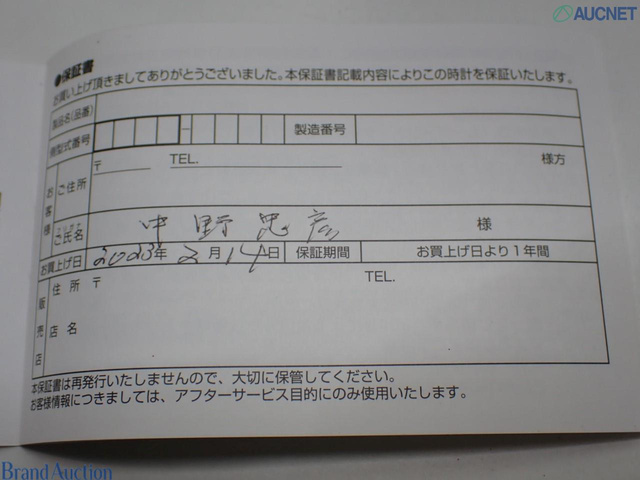 AUCNET
●保証書
お買い上げ頂きましてありがとうございました。本保証書記載内容によりこの時計を保証いたします。
製品名(品番)
側型式番号 - 製造番号
お客様 ご住所 〒 TEL. 様方
ご氏名 中野忠彦 様
お買上げ日 2023年2月14日 保証期間 お買上げ日より1年間
販売店 住所 〒 TEL.
店名
本保証書は再発行いたしませんので、大切に保管してください。
お客様情報につきましては、アフターサービス目的にのみ使用いたします。
Brand Auction